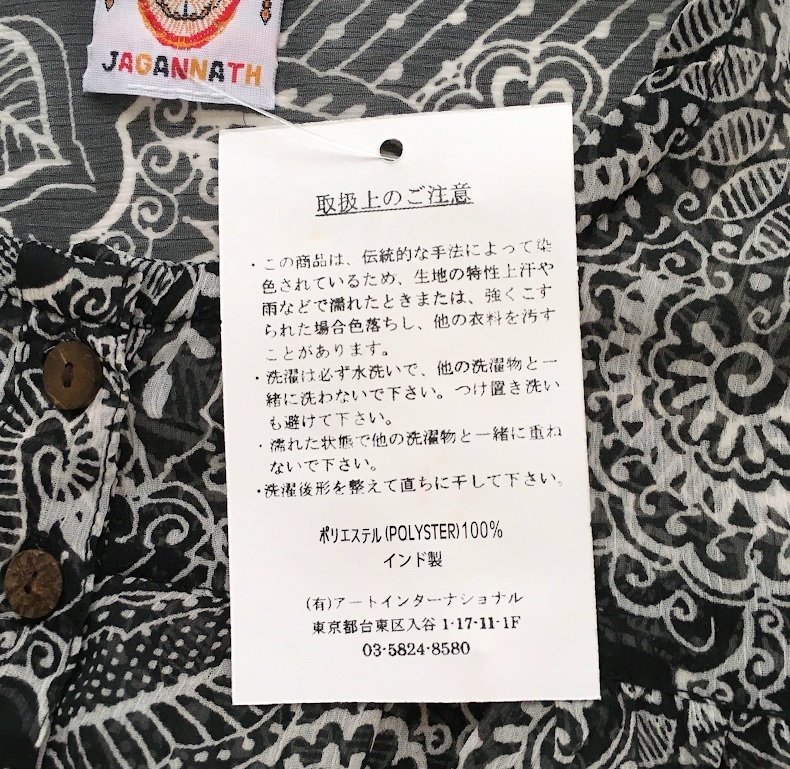 JAGANNATH
取扱上のご注意
・この商品は、伝統的な手法によって染
色されているため、生地の特性上汗や
雨などで濡れたときまたは、強くこす
られた場合色落ちし、他の衣料を汚す
ことがあります。
・洗濯は必ず水洗いで、他の洗濯物と一
緒に洗わないで下さい。つけ置き洗い
も避けて下さい。
・濡れた状態で他の洗濯物と一緒に重ね
ないで下さい。
・洗濯後形を整えて直ちに干して下さい。
ポリエステル(POLYSTER)100%
インド製
(有)アートインターナショナル
東京都台東区入谷 1-17-11-1F
03-5824-8580